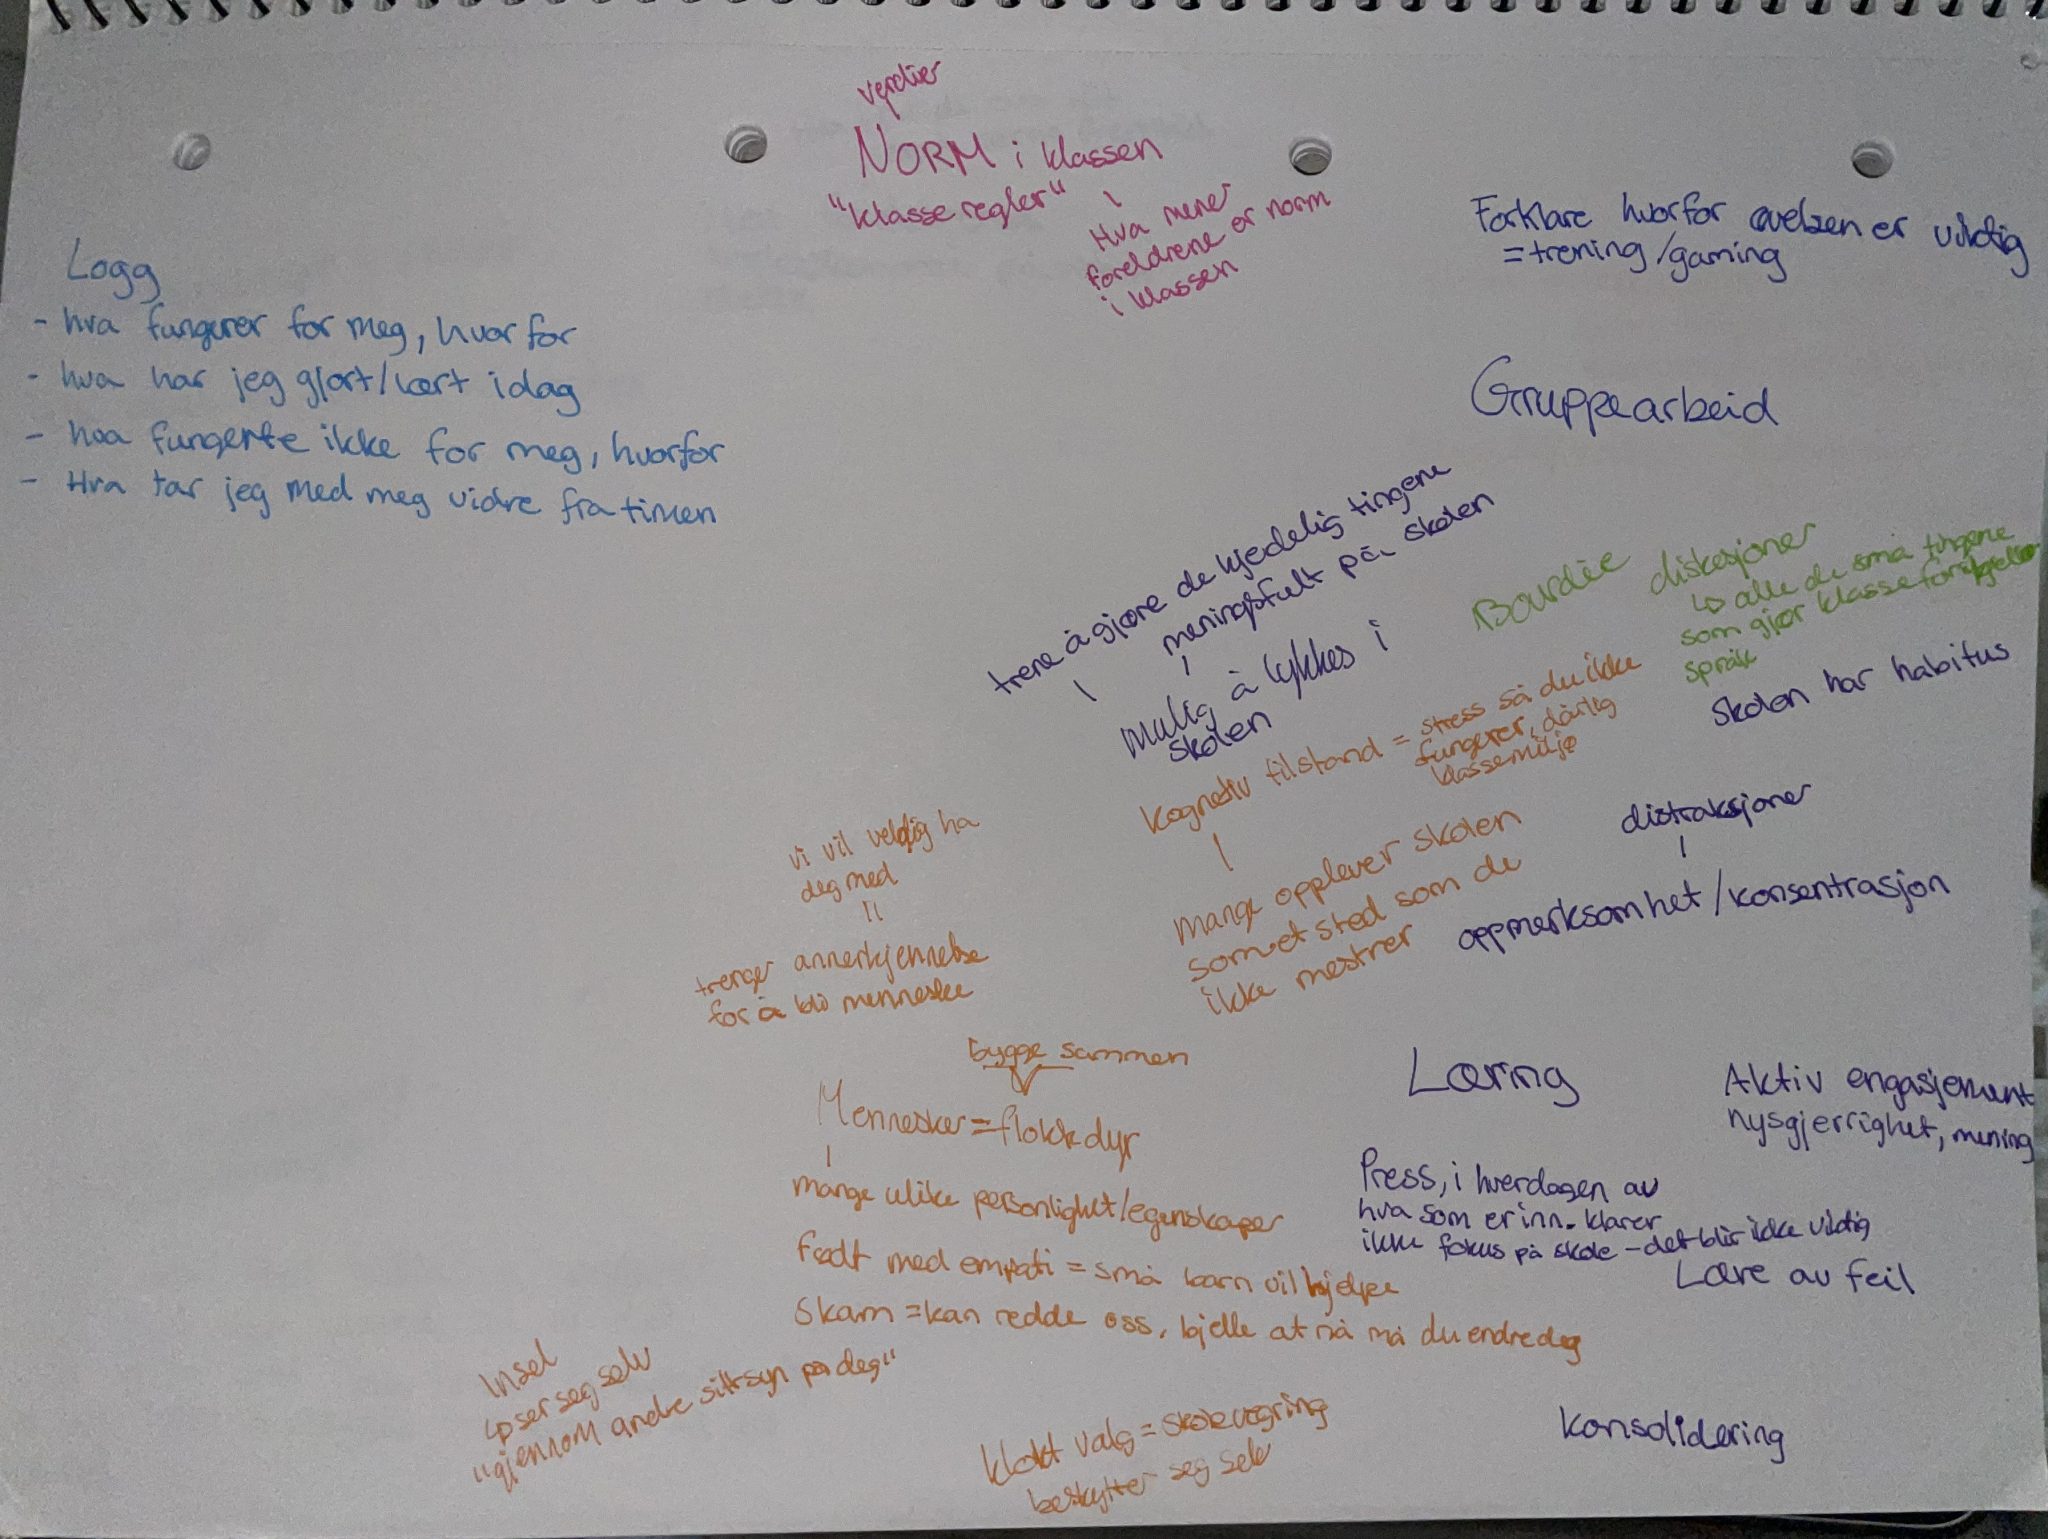 verdier
NORM i klassen
"klasse regler"
Hva mener
foreldrene er norm
i klassen
Logg
- hva fungerer for meg, hvorfor
- hva har jeg gjort/lært idag
- hva fungerte ikke for meg, hvorfor
- Hva tar jeg med meg vidre fra timen
Forklare hvorfor øvelsen er viktig
= trening/gaming
Gruppearbeid
trene å gjøre de kjedelig tingene
meningsfult på skolen
mulig å lykkes i
skolen
Bourdie
diskusjoner
↳ alle de små tingene
som gjør klasseforskjeller
språk
Skolen har habitus
Kognetiv tilstand = stress så du ikke
fungerer, dårlig
klassemiljø
mange opplever skolen
som et sted som de
ikke mestrer
distraksjoner
oppmerksomhet/konsentrasjon
vi vil veldig ha
deg med
=
trenger annerkjennelse
for å bli menneske
bygge sammen
Mennesker = flokkdyr
mange ulike personlighet/egenskaper
født med empati = små barn vil hjelpe
Skam = kan redde oss, bjelle at nå må du endre deg
Læring
Aktiv engasjement
nysgjerrighet, mening
Press, i hverdagen av
hva som er inn. klarer
ikke fokus på skole - det blir ikke viktig
Lære av feil
Insel
↳ ser seg selv
"gjennom andre sitt syn på deg"
klokt valg = skolevegring
beskytter seg selv
konsolidering